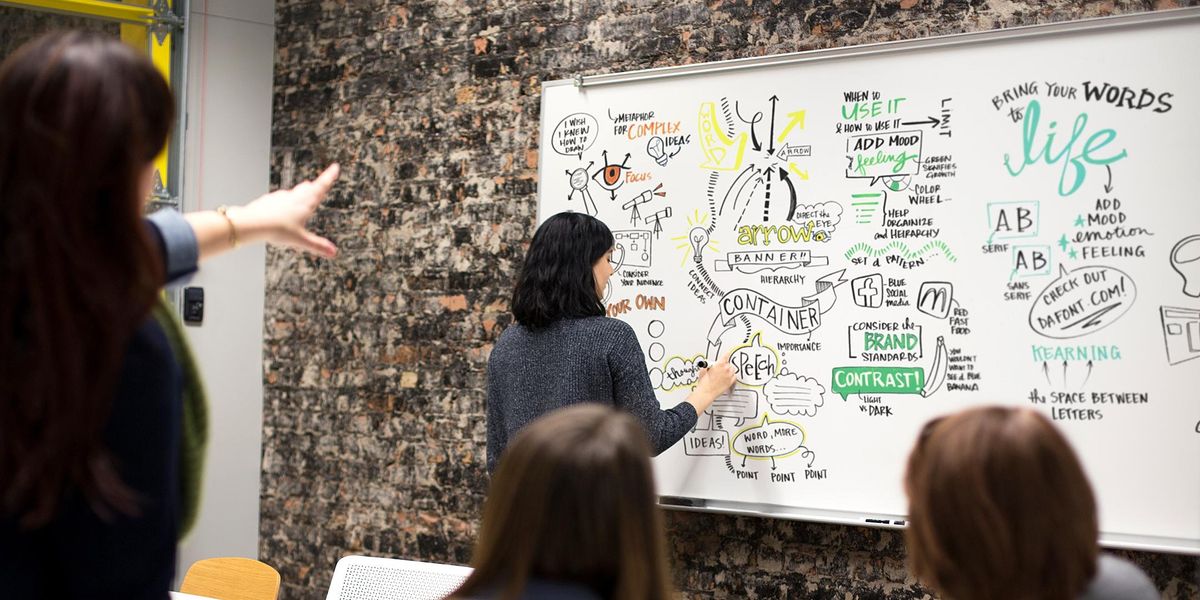 I WISH
I KNEW
HOW TO
DRAW
METAPHOR
FOR COMPLEX
IDEAS
FOCUS
CONSIDER
YOUR AUDIENCE
YOUR OWN
WORD
ARROW
DIRECT the
EYE
arrow
BANNER!!
HIERARCHY
CONNECT IDEAS
CONTAINER
IMPORTANCE
thought
SPEECH
IDEAS!
WORD, MORE
WORDS...
POINT POINT POINT
WHEN TO
USE IT
& HOW TO USE IT
LIMIT
ADD MOOD
feeling
GREEN
SIGNIFIES
GROWTH
COLOR
WHEEL
HELP
ORGANIZE
AND HEIRARCHY
SET a PATTERN...
f
BLUE
SOCIAL
MEDIA
M
RED
FAST
FOOD
CONSIDER the
BRAND
STANDARDS
YOU WOULDN'T
WANT TO
SEE a BLUE
BANANA
CONTRAST!
LIGHT
VS DARK
BRING YOUR WORDS
to life
ADD
MOOD
emotion
FEELING
AB
SERIF
AB
SANS
SERIF
CHECK OUT
DAFONT.COM!
KEARNING
the SPACE BETWEEN
LETTERS